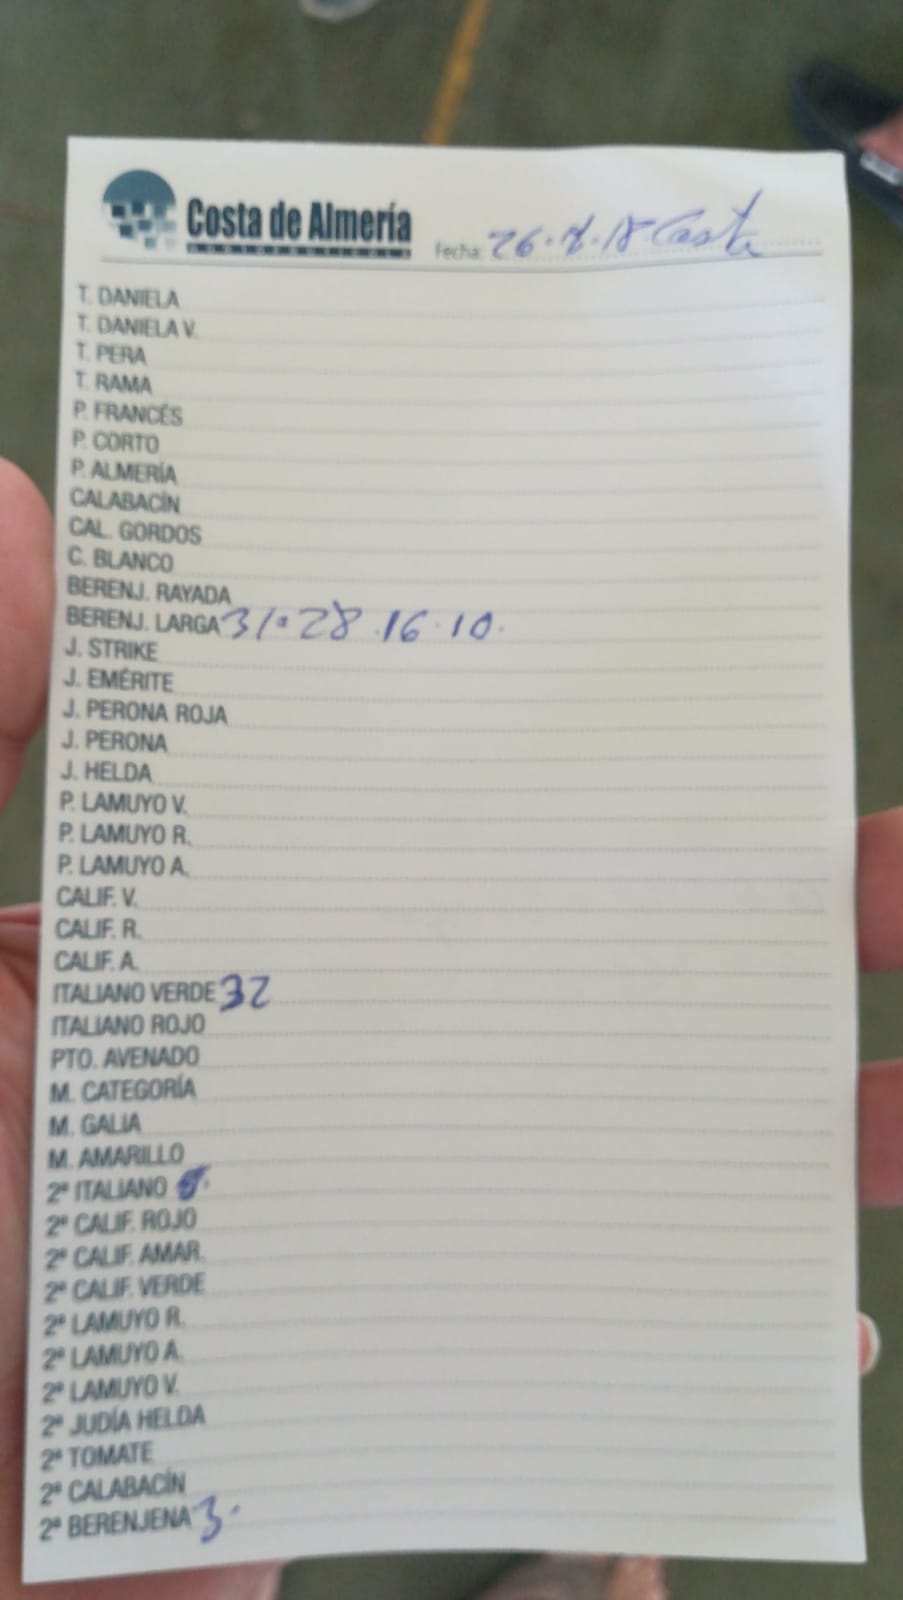 Costa de Almería
Fecha: 26.8.18
T. DANIELA
T. DANIELA V.
T. PERA
T. RAMA
P. FRANCÉS
P. CORTO
P. ALMERÍA
CALABACÍN
CAL. GORDOS
C. BLANCO
BERENJ. RAYADA
BERENJ. LARGA 31.28.16.10.
J. STRIKE
J. EMÉRITE
J. PERONA ROJA
J. PERONA
J. HELDA
P. LAMUYO V.
P. LAMUYO R.
P. LAMUYO A.
CALIF. V.
CALIF. R.
CALIF. A.
ITALIANO VERDE 32
ITALIANO ROJO
PTO. AVENADO
M. CATEGORÍA
M. GALIA
M. AMARILLO
2ª ITALIANO
2ª CALIF. ROJO
2ª CALIF. AMAR.
2ª CALIF. VERDE
2ª LAMUYO R.
2ª LAMUYO A.
2ª LAMUYO V.
2ª JUDÍA HELDA
2ª TOMATE
2ª CALABACÍN
2ª BERENJENA 3.